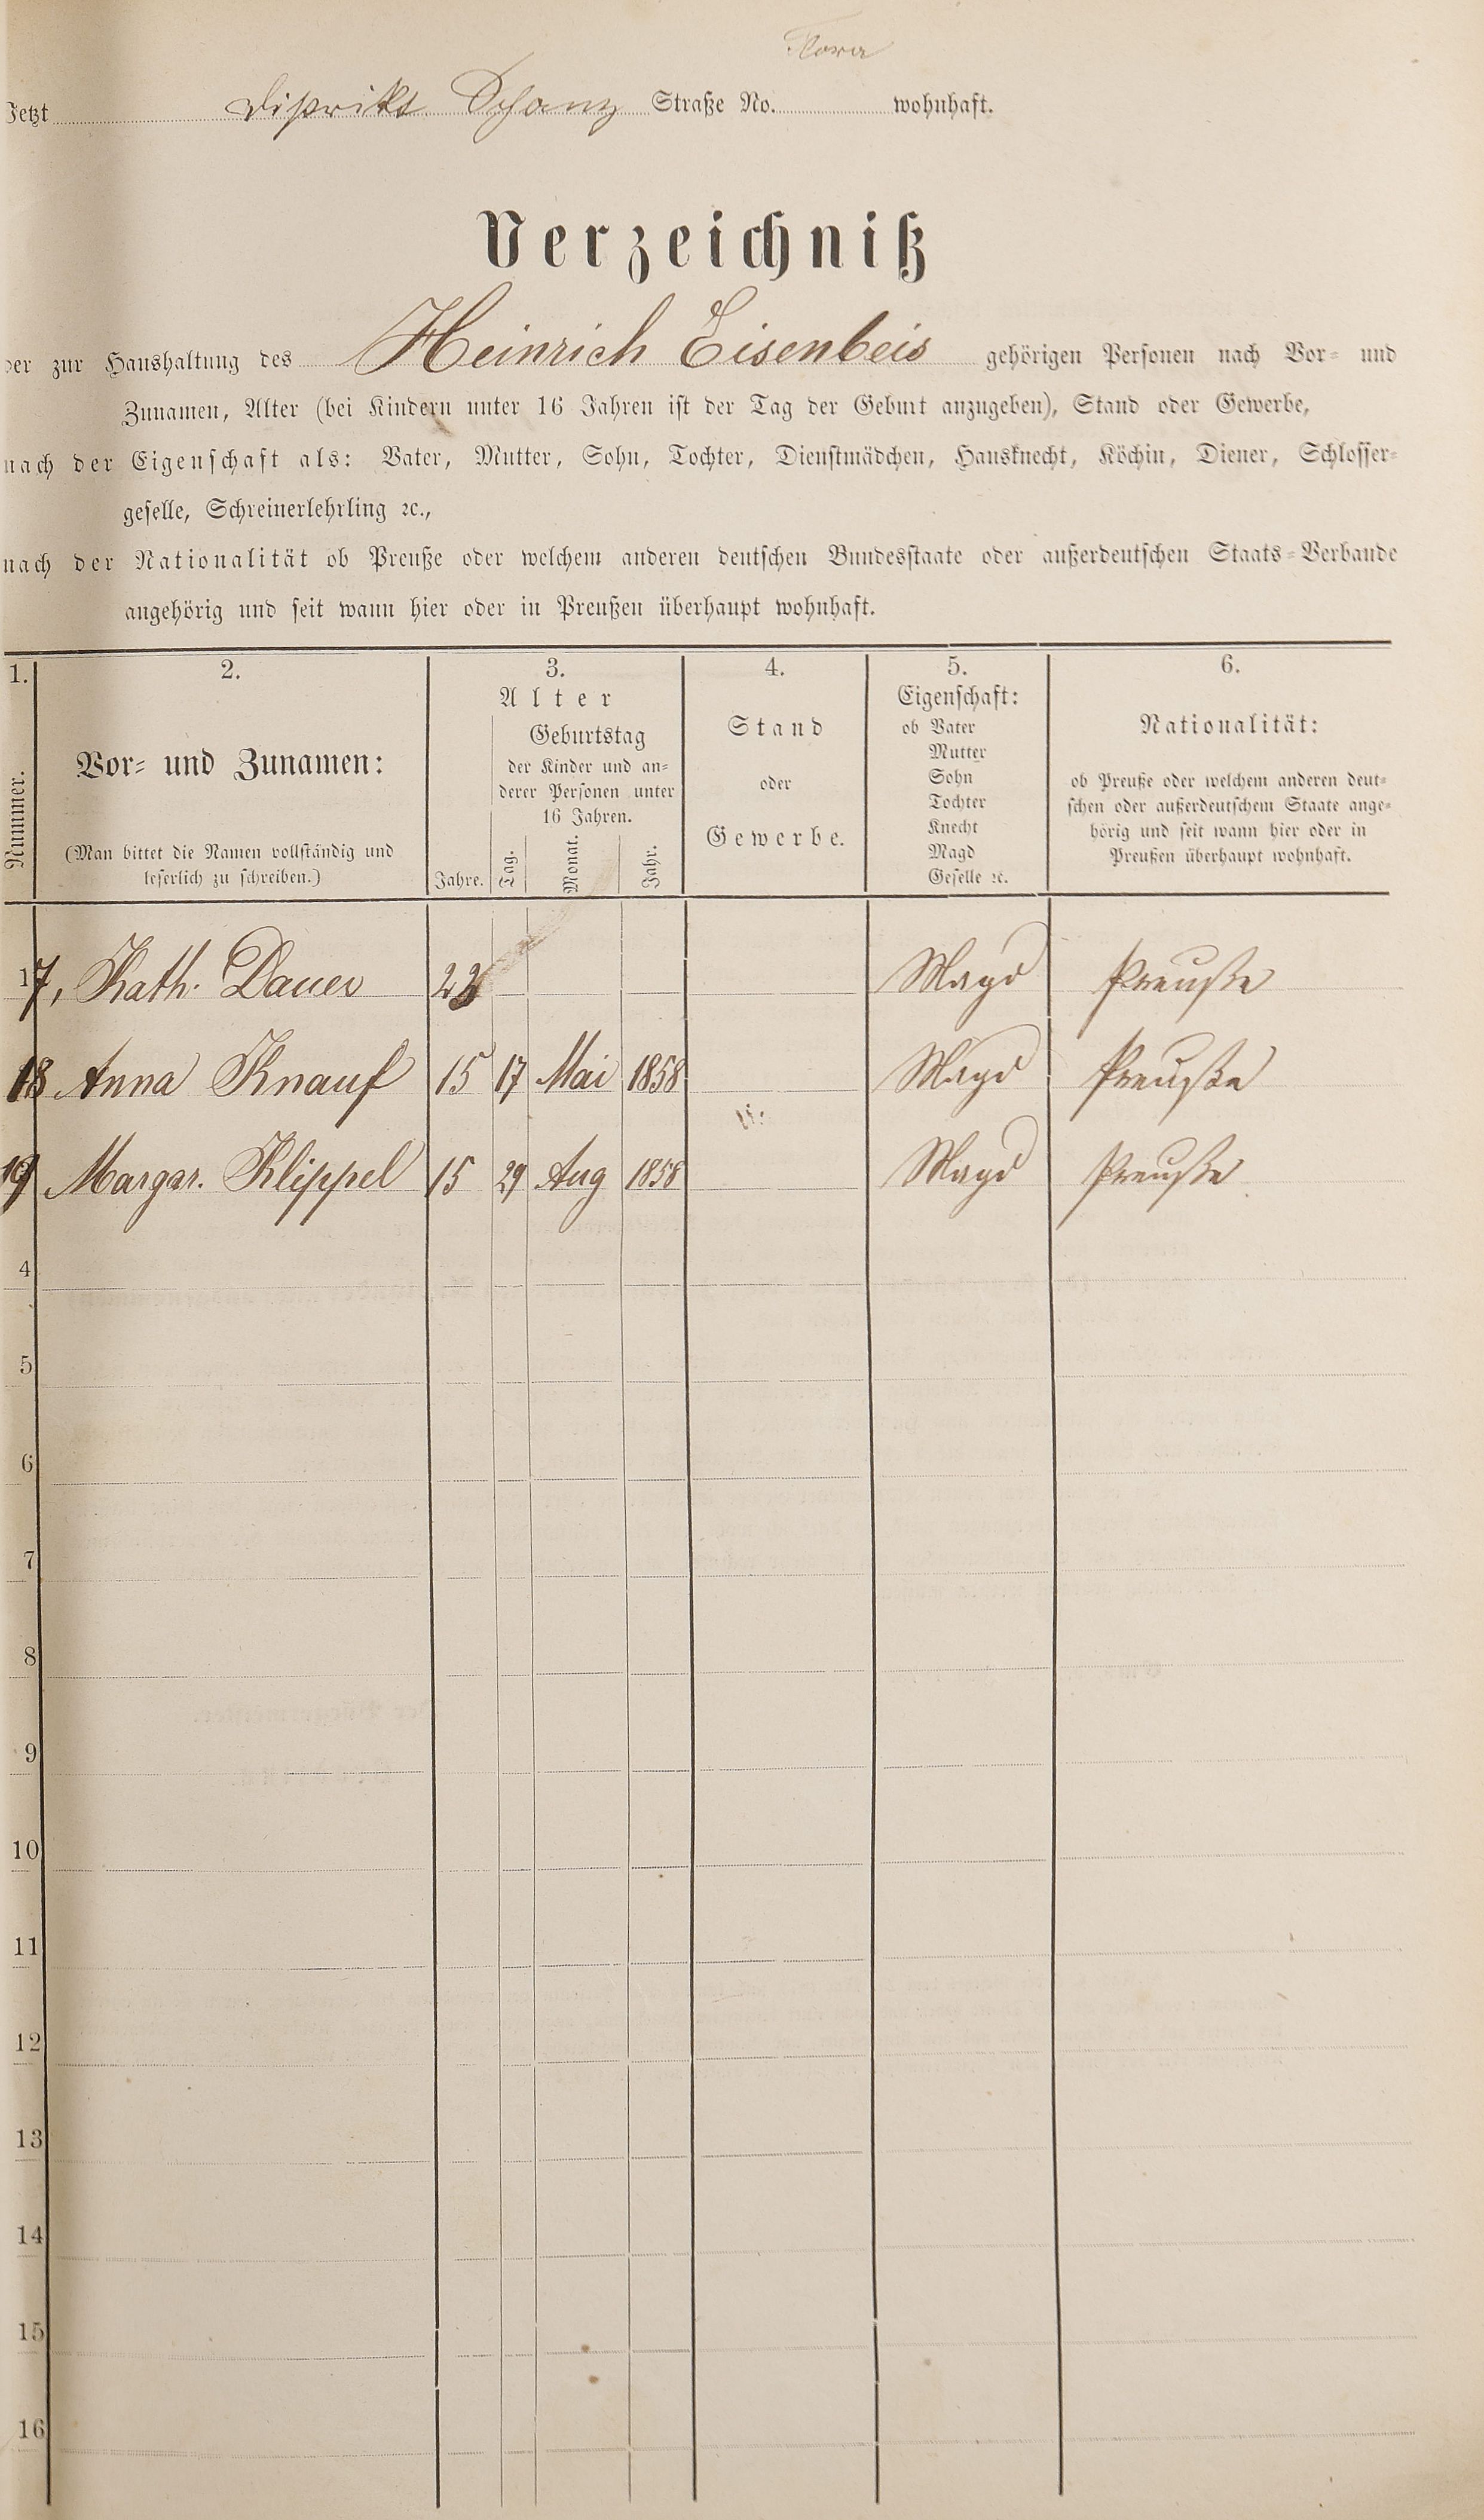 Flora
Jetzt Distrikt Schanz Straße No. wohnhaft.
Verzeichniß
der zur Haushaltung des Heinrich Eisenbeis gehörigen Personen nach Vor- und
Zunamen, Alter (bei Kindern unter 16 Jahren ist der Tag der Geburt anzugeben), Stand oder Gewerbe,
nach der Eigenschaft als: Vater, Mutter, Sohn, Tochter, Dienstmädchen, Hausknecht, Köchin, Diener, Schlosser-
geselle, Schreinerlehrling ꝛc.,
nach der Nationalität ob Preuße oder welchem anderen deutschen Bundesstaate oder außerdeutschen Staats-Verbande
angehörig und seit wann hier oder in Preußen überhaupt wohnhaft.
1. 2. 3. 4. 5. 6.
Nummer.
Vor- und Zunamen:
(Man bittet die Namen vollständig und
leserlich zu schreiben.)
Alter
Jahre.
Geburtstag
der Kinder und an-
derer Personen unter
16 Jahren.
Tag. Monat. Jahr.
Stand
oder
Gewerbe.
Eigenschaft:
ob Vater
Mutter
Sohn
Tochter
Knecht
Magd
Geselle ꝛc.
Nationalität:
ob Preuße oder welchem anderen deut-
schen oder außerdeutschem Staate ange-
hörig und seit wann hier oder in
Preußen überhaupt wohnhaft.
17, Kath. Dauer Magd Preuße
18 Anna Knauf 15 17 Mai 1858 Magd Preuße
19 Margar. Klippel 15 29 Aug 1858 Magd Preuße
4
5
6
7
8
9
10
11
12
13
14
15
16